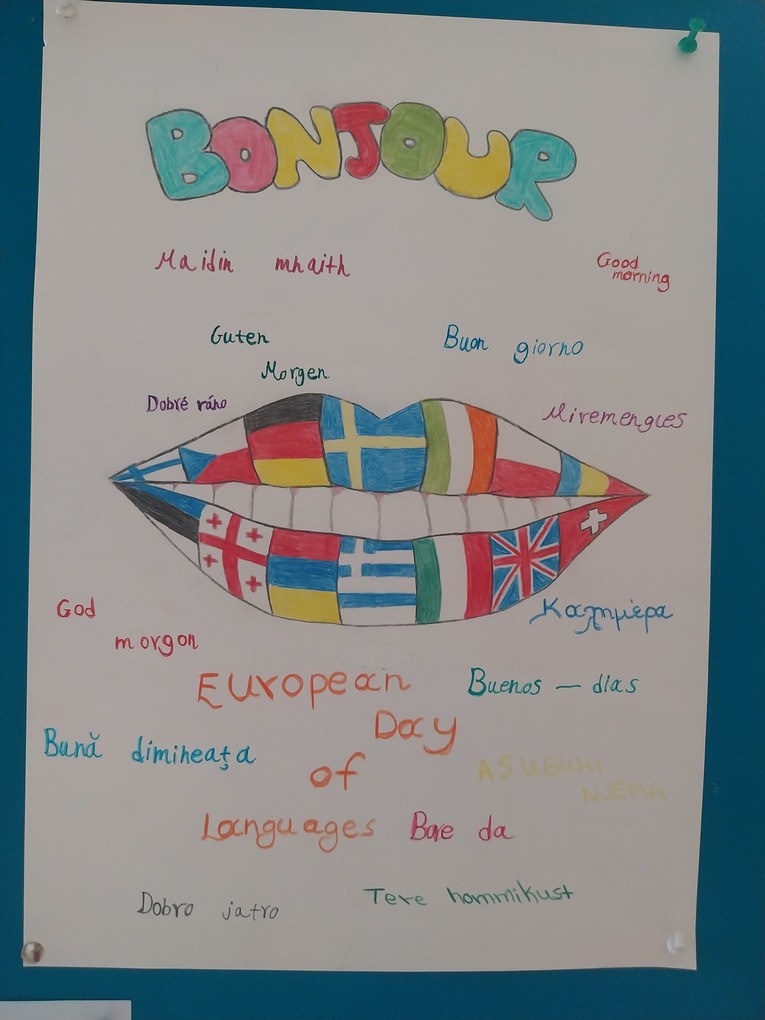 BONJOUR
Maidin mhaith
Good
morning
Guten
Morgen
Buon giorno
Dobré ráno
Miremengjes
God
morgon
Καλημέρα
European
Day
of
Languages
Buenos – dias
Bună dimineața
ASUBUHI
NJEMA
Bore da
Dobro jatro
Tere hommikust